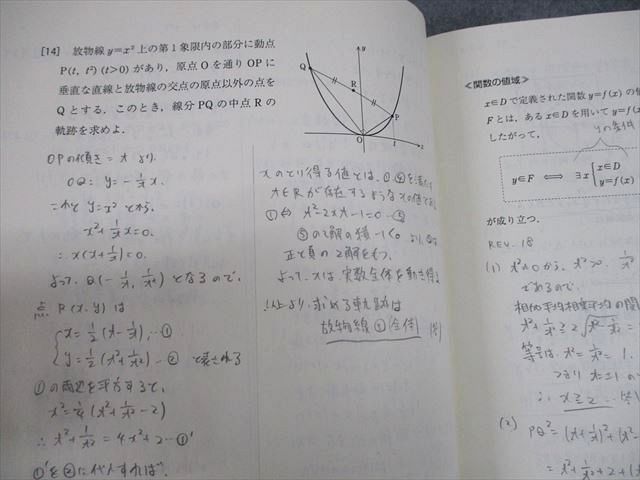 [14] 放物線 y=x² 上の第1象限内の部分に動点
P(t, t²) (t>0) があり，原点 O を通り OP に
垂直な直線と放物線の交点の原点以外の点を
Q とする．このとき，線分 PQ の中点 R の
軌跡を求めよ．
y
Q
R
P
O
t
x
OPの傾き = t より
OQ: y = -1/t x.
これと y = x² とから，
x² + 1/t x = 0.
∴ x(x + 1/t) = 0.
よって Q(-1/t, 1/t²) となるので，
点 R(x, y) は
x = 1/2 (t - 1/t) … ①
y = 1/2 (t² + 1/t²) … ② と表される
①の両辺を平方すると，
x² = 1/4 (t² + 1/t² - 2)
∴ t² + 1/t² = 4x² + 2 … ①'
①'を②に代入すれば
xのとり得る値とは，
t∈Rが存在するような
①⇔ t² - 2xt - 1 = 0 … ⑤
⑤の2解の積 -1 < 0 より，
正と負の2解をもつ．
よって，xは，実数全体を動き得る
以上より，求める軌跡は
放物線 全体
<関数の値域>
x∈D で定義された関数 y=f(x) の値
F とは，ある x∈D を用いて y=f(x)
したがって，
yの条件
y∈F ⇔ ∃x { x∈D
y=f(x)
が成り立つ．
REV. 18
(1)
であるので
相加平均相乗平均の関
t² + 1/t² ≧ 2√
等号は， t² = 1/t² = 1.
つまり t = ±1 の
(2) PQ² = (t + 1/t)² + (t² -
= t² + 1/t² + 2 +